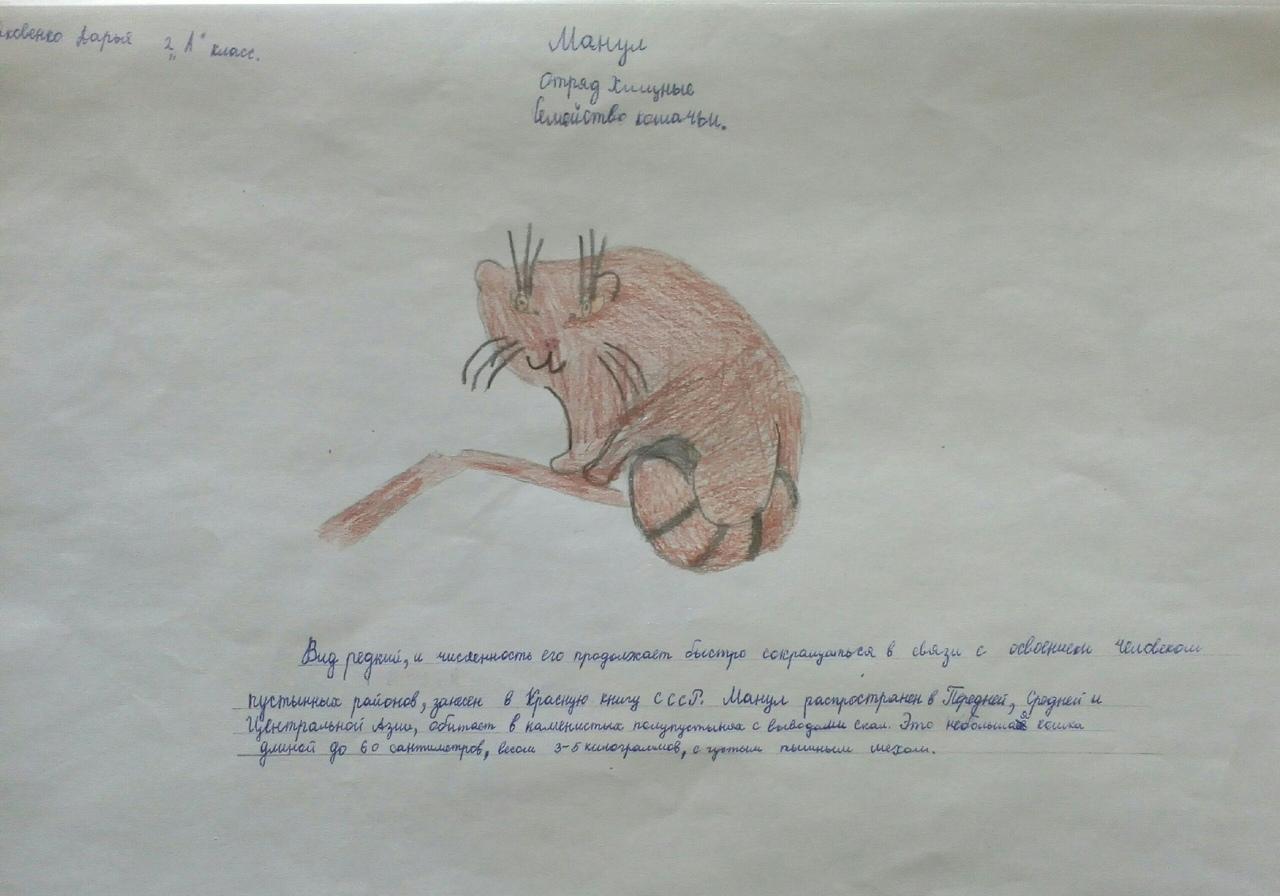 аковенко Дарья 2 "А" класс.
Манул
Отряд Хищные
Семейство кошачьи.
Вид редкий, и численность его продолжает быстро сокращаться в связи с освоением человеком
пустынных районов, занесен в Красную книгу СССР. Манул распространен в Передней, Средней и
Центральной Азии, обитает в каменистых полупустынях с выводами скал. Это небольшая кошка
длиной до 60 сантиметров, весом 3-5 килограммов, с густым пышным мехом.